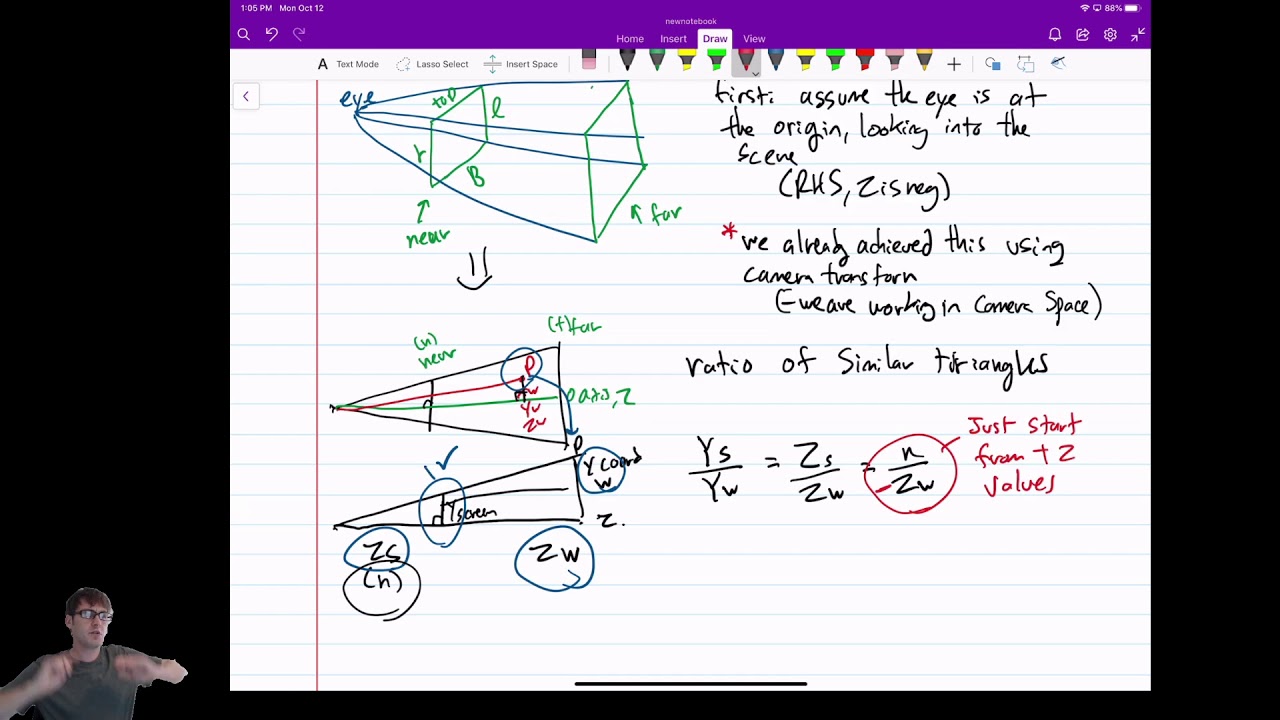 1:05 PM Mon Oct 12
88%
newnotebook
Home Insert Draw View
A Text Mode Lasso Select Insert Space
eye
top
l
r
B
near
far
first: assume the eye is at
the origin, looking into the
scene
(RHS, Z is neg)
* we already achieved this using
camera transform
(we are working in Camera Space)
(n)
near
(f) far
P
Yw
Zw
axis, Z
ratio of Similar triangles
P
Y coord
w
Yscreen
Z.
Zs
(n)
Zw
Ys/Yw = Zs/Zw = n/-Zw
Just start
from + Z
values